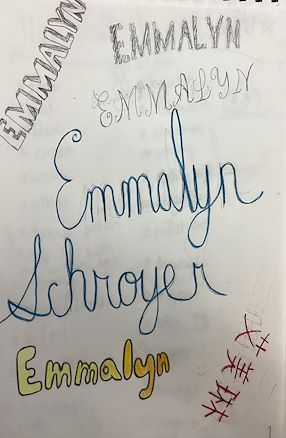 EMMALYN
EMMALYN
EMMALYN
Emmalyn
Schroyer
Emmalyn
艾美琳
1